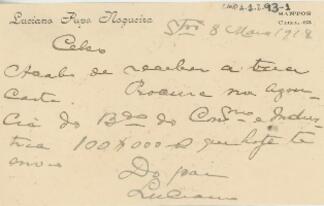 Luciano Pupo Nogueira
SANTOS
Stos 8 Maio 1918
Celso
Acabo de receber a tua
carta. Procura na Agen-
cia do Bco do Comcio e Indus-
tria 100$000 q hoje te
envio
Do pai
Luciano